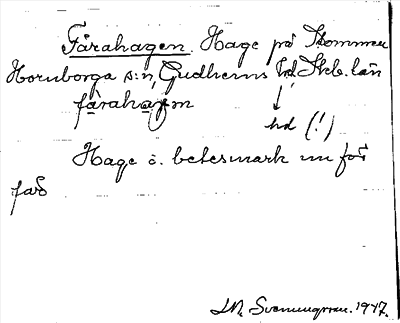 Fårahagen. Hage på Stommen
Hornborga s:n, Gudhems hd. Skb. län
fårahajen
hd (!)
Hage o. betesmark nu för
får
1947.